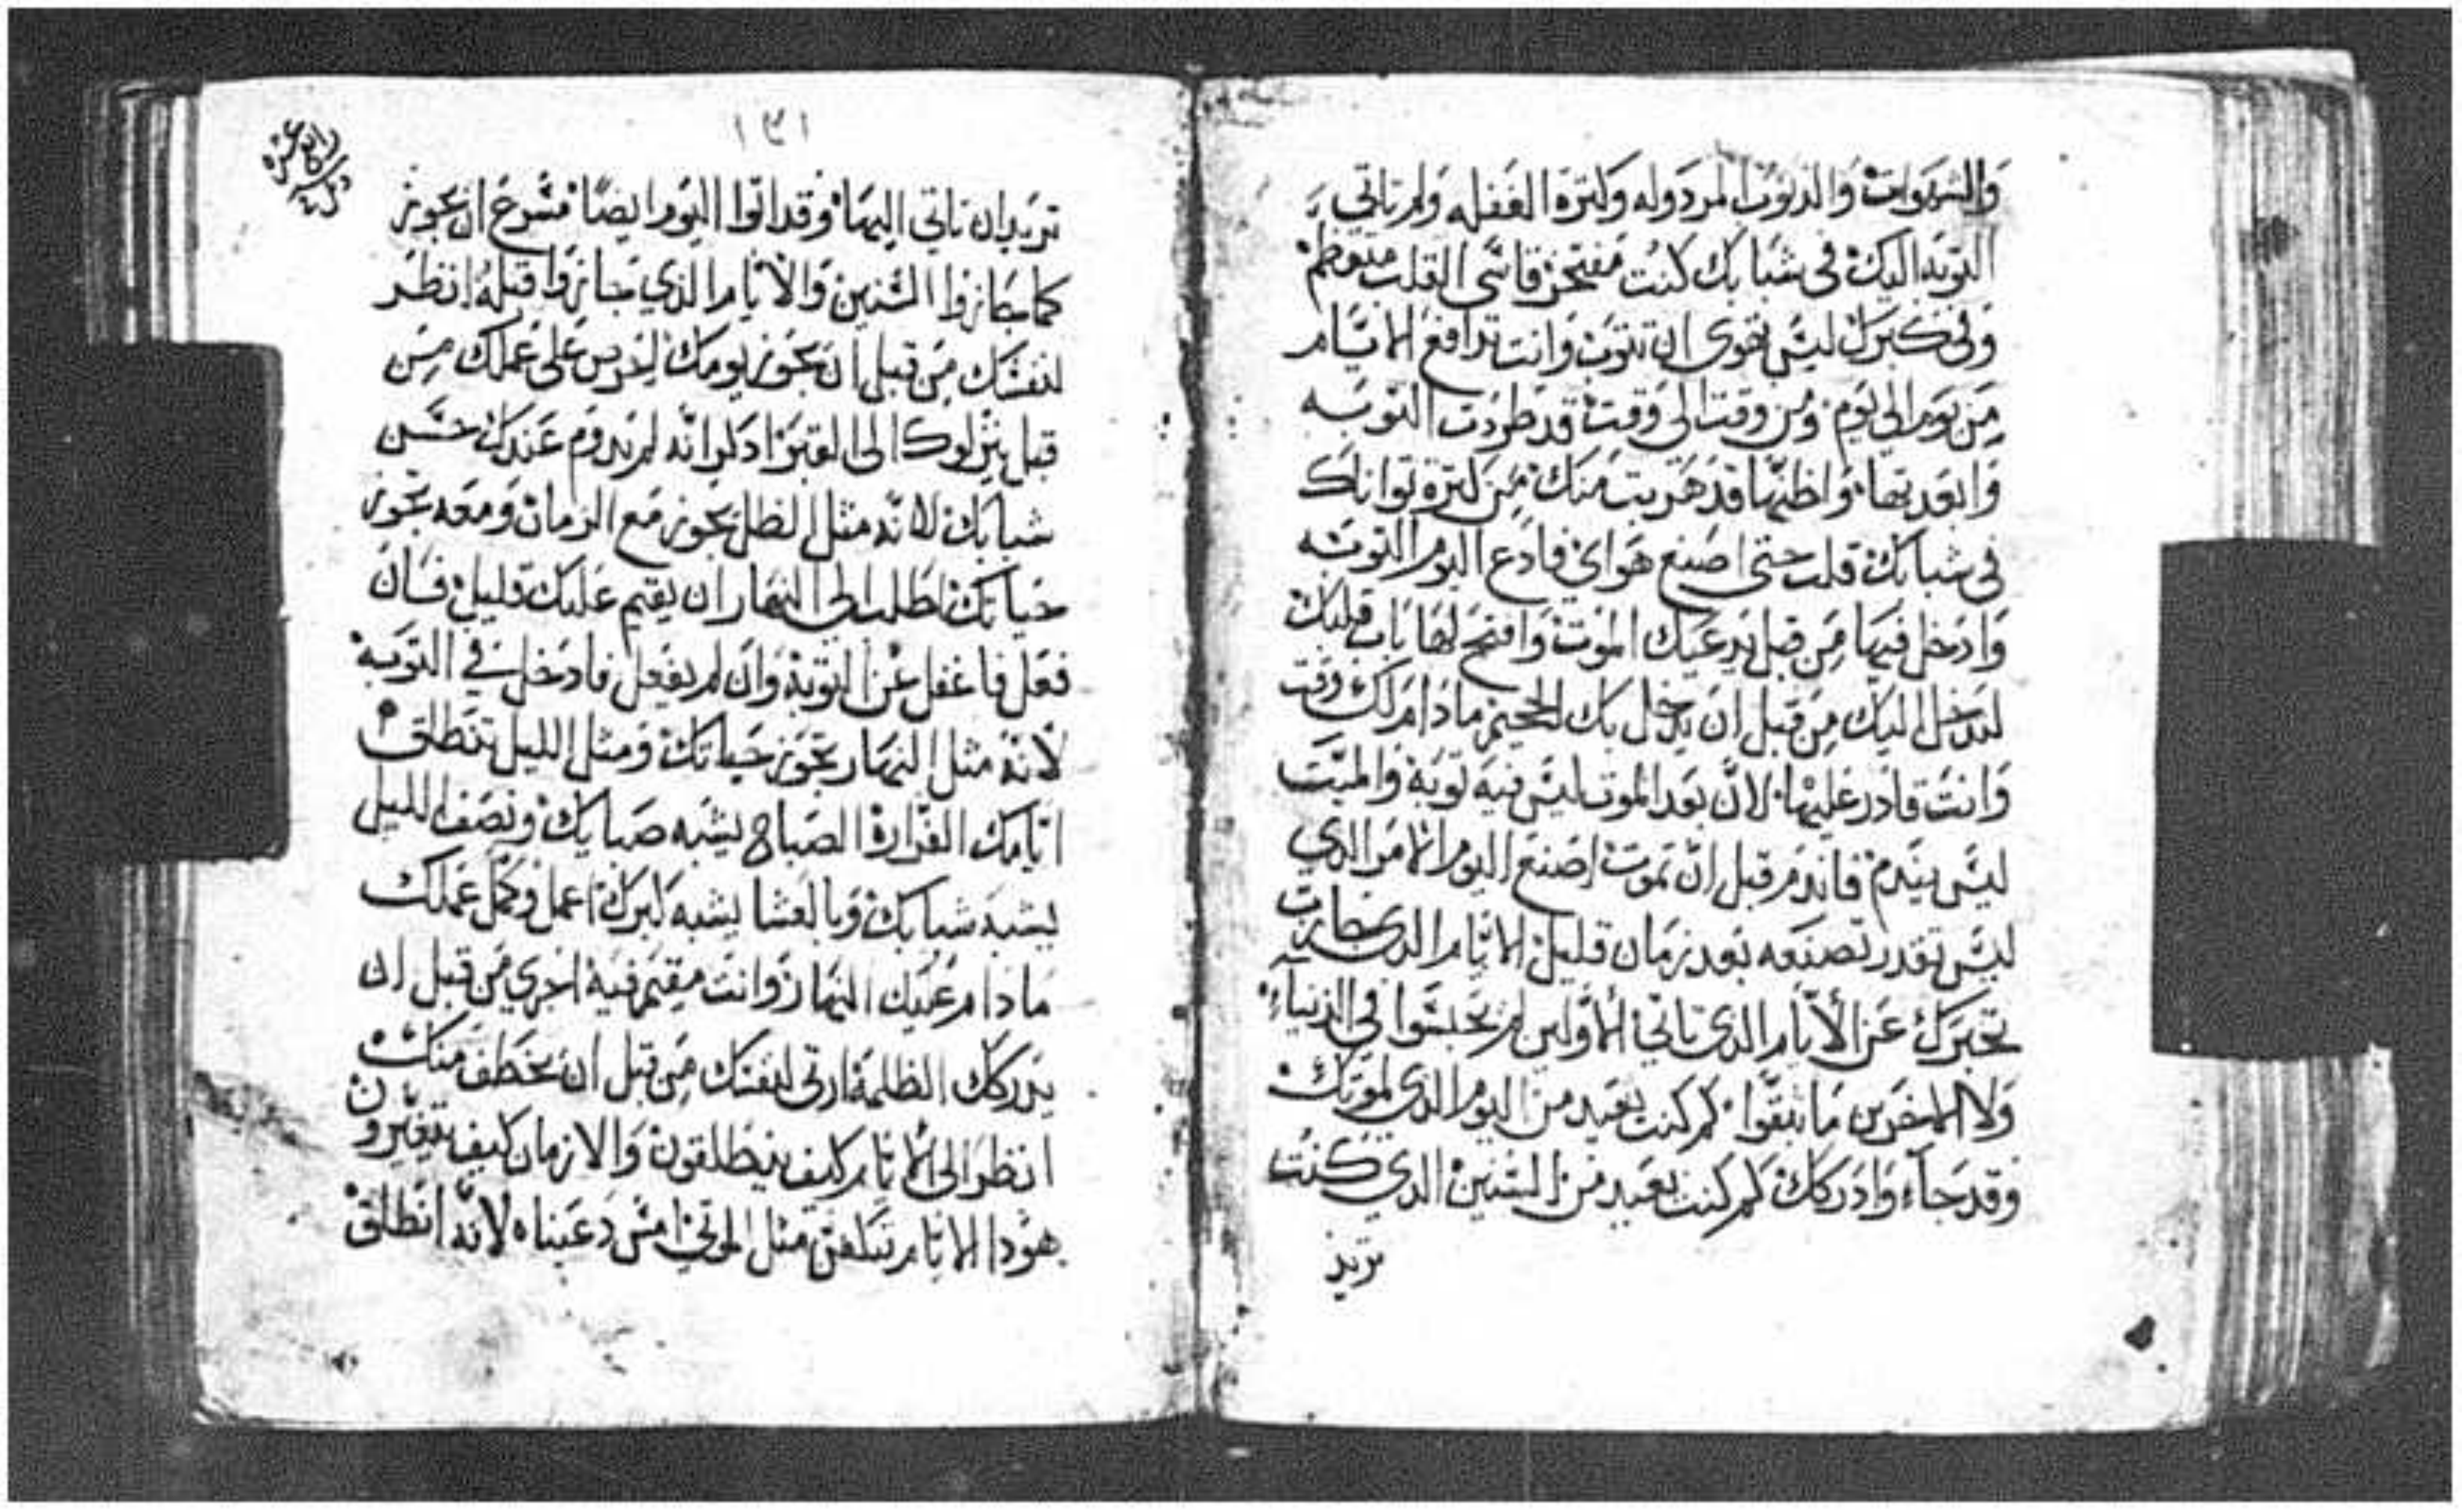 والشهوات والذنوب المردوله وكثرة الغفله ولم تاتي
التوبه اليك في شبابك كنت مفتخر قاسي القلب متعظم
وفي كبرك ليس تقوى ان تتوب وانت تدافع الايام
من يوم الي يوم ومن وقت الي وقت قد طردت التوبه
وابعدتها واظنها قد هربت منك من كثرة توانك
في شبابك قلت حتى اصنع هواي فادع اليوم التوبه
وادخل فيها من قبل يدعيك الموت وافتح لها باب قلبك
لتدخل اليك من قبل ان يدخل بك الجحيم مادام لك وقت
وانت قادر عليها لان بعد الموت ليس فيه توبة والميت
ليس يندم فاندم قبل ان تموت اصنع اليوم الامر الدي
ليس تقدر تصنعه بعد زمان قليل الايام الدي جازت
تخبرك عن الأيام الدي تاتي الأولين لم تحبسوا في الدنياء
ولا الاخرين ما تبقوا كم كنت بعيد من اليوم الدي لموتك
وقد جاء وادركك كم كنت بعيد من السنين الدي كنت
تريد
١٣١
رابع عشره
تريد ان تاتي اليها وقد اتوا اليوم ايضا مسرع ان تجوز
كما جازوا السنين والايام الذي جازوا قبله انظر
لنفسك من قبل ان تجوز يومك احرس على عملك من
قبل نزلوك الى القبر ادكر انه لم يدوم عندك حسن
شبابك لانه مثل الظل يجوز مع الزمان ومعه تجوز
حياتك اطلب الي النهار ان يقيم عليك قليل فان
فعل فاغفل عن التوبة وان لم يفعل فادخل في التوبه
لانه مثل النهار تجوز حياتك ومثل الليل تنطلق
ايامك الفرارة الصباح يشبه صبايك ونصف الليل
يشبه شبابك وبالعشا يشبه كبرك اعمل وكمل عملك
مادام عليك النهار وانت مقيم فيه اجري من قبل ان
يدركك الظلمة ارتي لنفسك من قبل ان تخطف منك
انظر الى الايام كيف ينطلقون والازمان كيف يتغيرون
هودا الايام تبلعن مثل الموتي امس دعيناه لانه انطلق